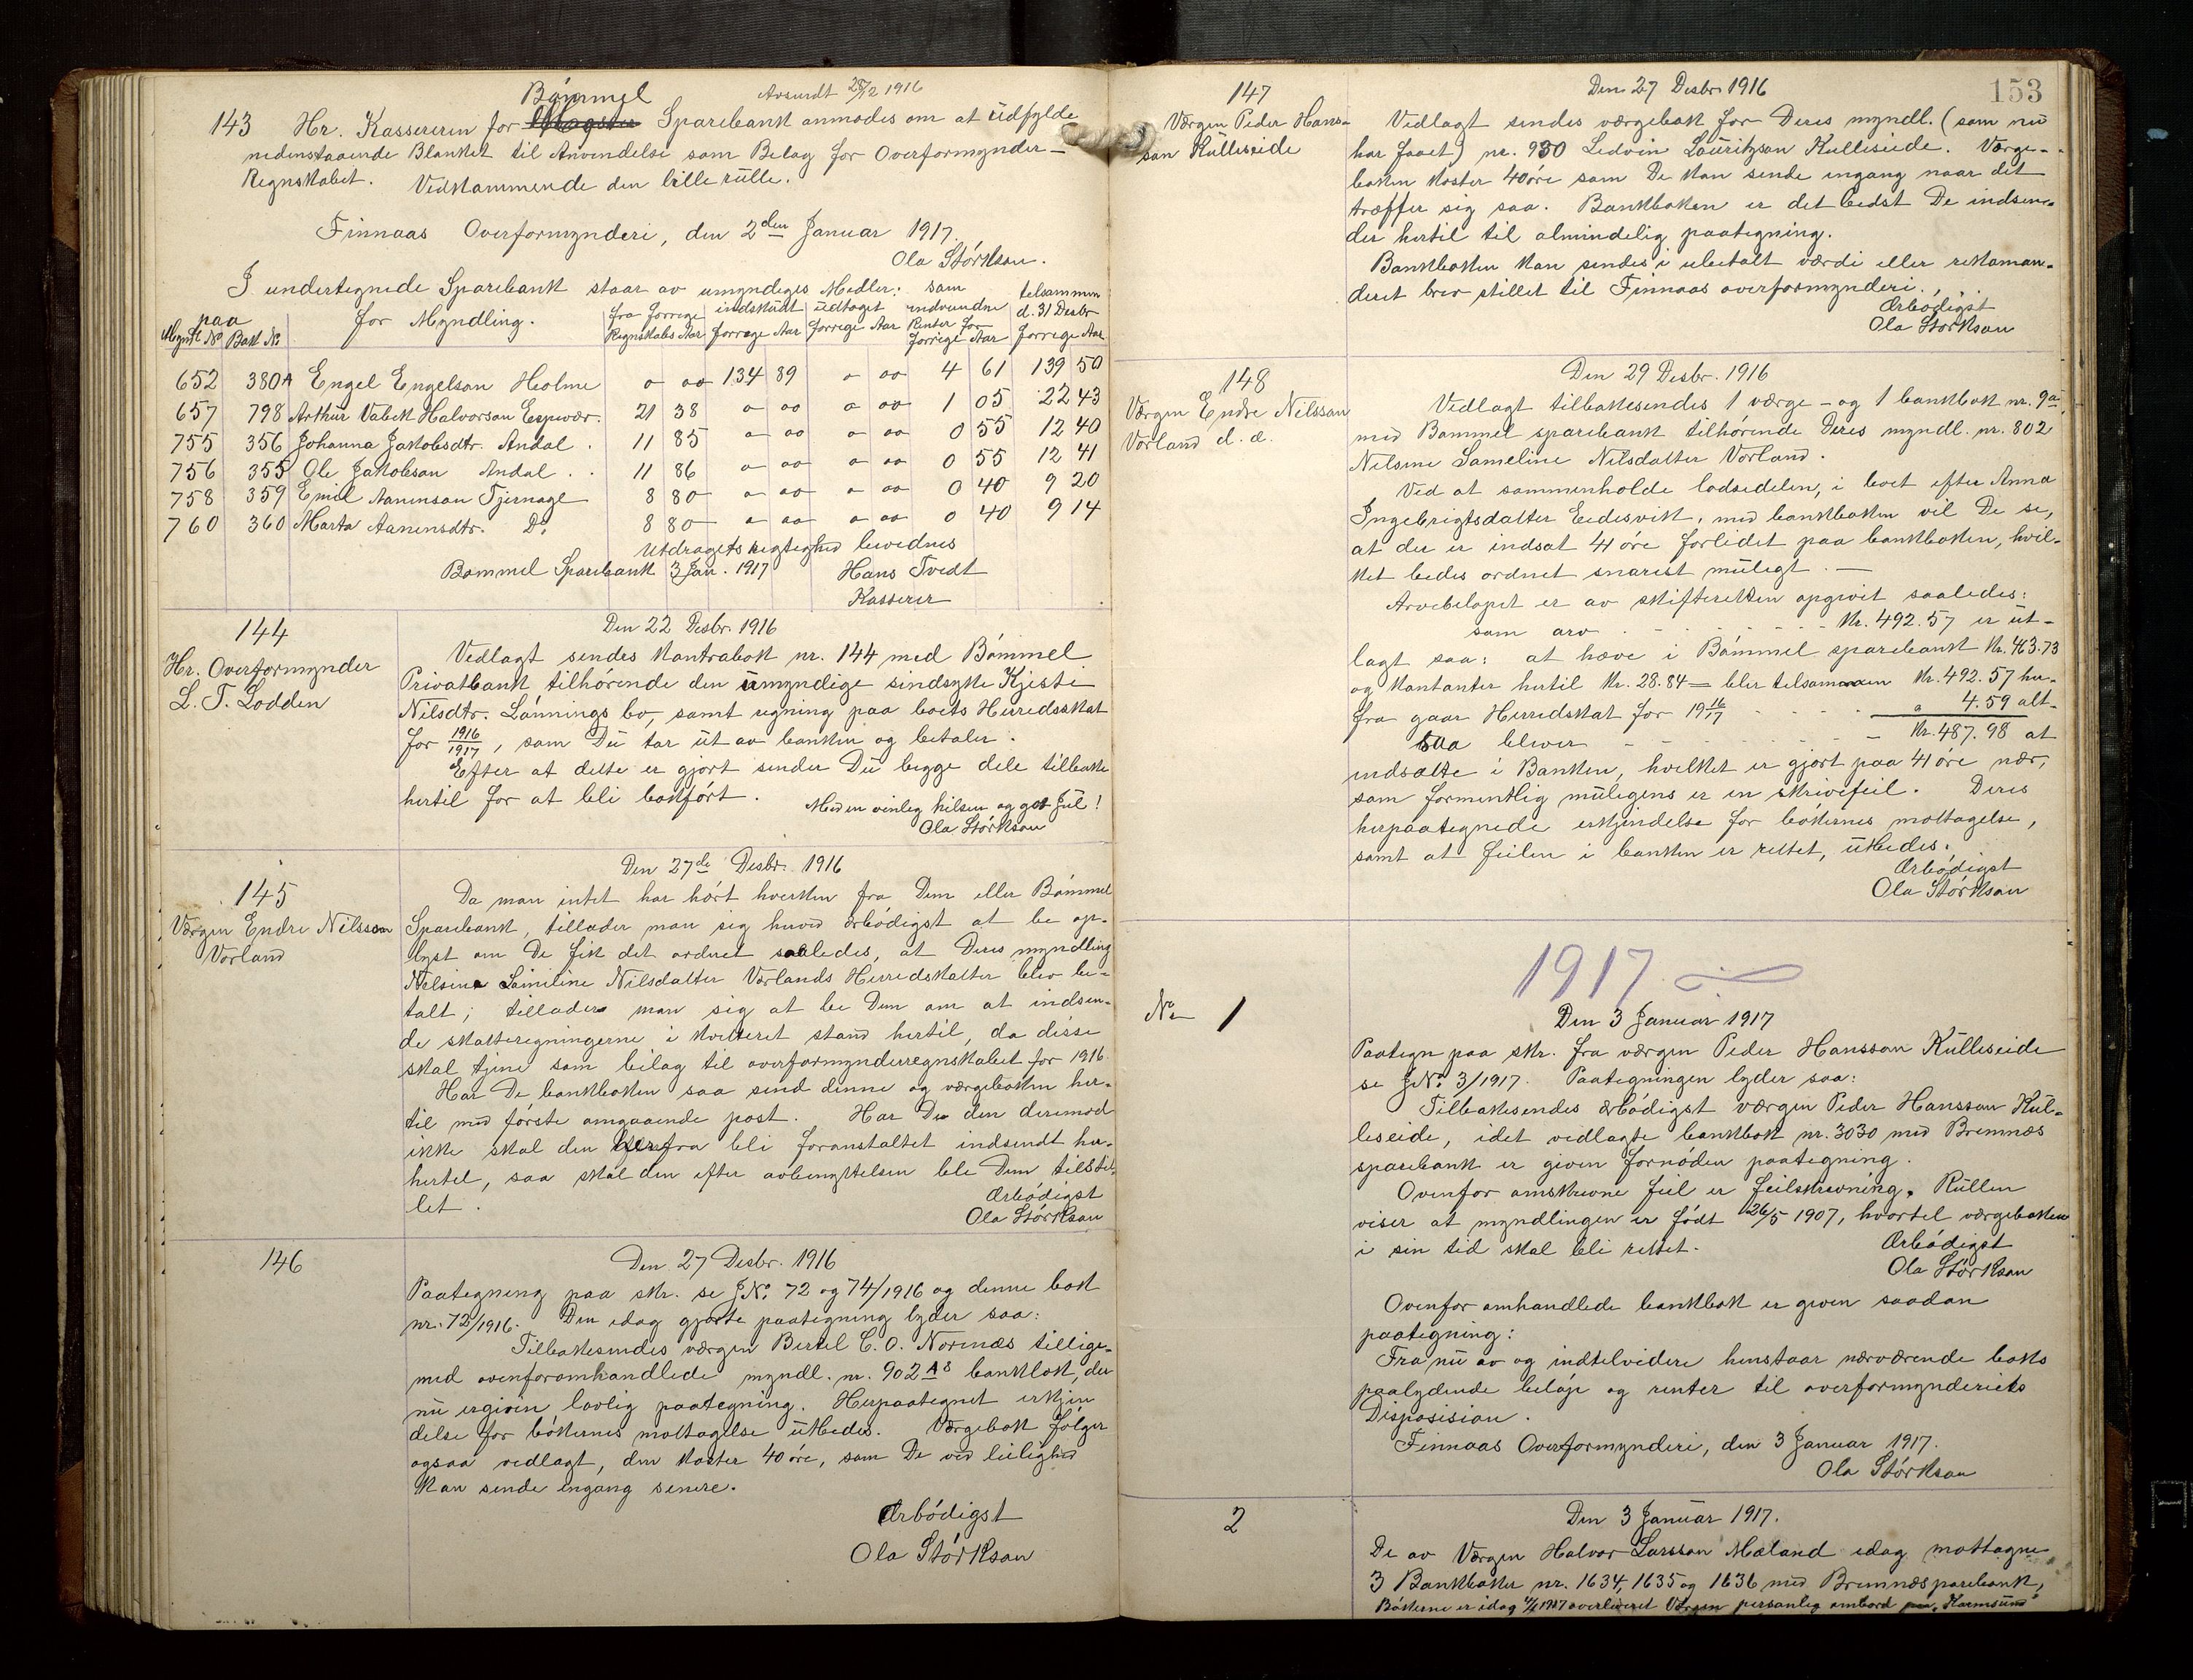 Bömmel Avsendt 28/12 1916
143 Hr. Kassereren for Sparebank anmodes om at udfylde
nedenstaaende Blanket til Anvendelse som Belag for Overformynder-
Regnskabet. Vedkammende den lille rulle.
Finnaas Overformynderi, den 2den Januar 1917.
Ola Störkson.
I undertegnede Sparebank staar av umyndiges Midler: som
paa
Mynd. No Bank No for Myndling. fra forrige Regnskabs Aar indskudt forrige Aar udtaget forrige Aar indvundne Renter for forrige Aar tilsammen d. 31 Desbr forrige Aar
652 380A Engel Engelson Holme 0 00 134 89 0 00 4 61 139 50
657 798 Arthur Valek Halvorson Espevær. 21 38 0 00 0 00 1 05 22 43
755 356 Johanna Jakobsdtr. Andal. 11 85 0 00 0 00 0 55 12 40
756 355 Ole Jakobson Andal.. 11 86 0 00 0 00 0 55 12 41
758 359 Emil Aanenson Tjernagel 8 80 0 00 0 00 0 40 9 20
760 360 Marta Aanensdtr. Do 8 80 0 00 0 00 0 40 9 14
Utdragets rigtighed bevidnes
Bømmel Sparebank 3 Jan. 1917 Hans Tvedt
Kasserer
144
Hr. Overformynder
L. T. Lodden
Den 22 Desbr. 1916
Vedlagt sendes kontrabok nr. 144 med Bömmel
Privatbank tilhörende den umyndige sindsyke Kjersti
Nilsdtr. Lönnings bo, samt regning paa boets Herredsskat
for 1916/1917, som Du tar ut av banken og betaler.
Efter at dette er gjort sender Du begge dele tilbake
hertil for at bli bokfört. Med en vinleg hilsen og got Jul!
Ola Störkson
145
Værgen Endre Nilsson
Vorland
Den 27de Desbr. 1916
Da man intet har hört hverken fra Dem eller Bömmel
Sparebank, tillader man sig herved ærbödigst at be op-
lyst om De fik det ordnet saaledes, at Deres myndling
Nilsine Lamiline Nilsdatter Vorlands Herredskatter blev be-
talt; tillader man sig at be Dem om at indsen-
de skatteregningerne i kvitteret stand hertil, da disse
skal tjene som bilag til overformynderregnskabet for 1916.
Har De bankboken saa send denne og værgeboken her-
til med förste omgaaende post. Har De den derimod
ikke skal den herfra bli foranstaltet indsendt her-
hertel, saa skal den efter avbenyttelsen ble Dem tilstil-
let.
Ærbödigst
Ola Störkson
146
Den 27 Desbr. 1916
Paategning paa skr. se J.No. 72 og 74/1916 og denne bok
nr. 72/1916. Den idag gjorte paategning lyder saa:
Tilbakesendes værgen Bertel C. O. Nornæs tillige-
med ovenforomhandlede myndl. nr. 902 A8 bankbok, der
nu ergiven lovlig paategning. Herpaategnet erkjen
delse for bökernes mottagelse utbedes. Værgebok fölger
ogsaa vedlagt, den koster 40 öre, som De ved leilighed
kan sende engang senere.
Ærbödigst
Ola Störkson
153
147
Værgen Peder Hans-
son Kulleseide
Den 27 Desbr. 1916
Vedlagt sendes værgebok for Deres myndl. (som nu
har faaet) nr. 930 Ledvin Lauritzson Kulleseide. Værge-
boken koster 40 öre som De kan sende engang naar det
træffer sig saa. Bankboken er det bedst De indsen-
der hertil til almindelig paategning.
Bankboken kan sendes i ubetalt værdi eller rekoman-
deret brev stillet til Finnaas overformynderi.
Ærbödigst
Ola Störkson
148
Værgen Endre Nilsson
Vorland d. æ.
Den 29 Desbr. 1916
Vedlagt tilbakesendes 1 værge- og 1 bankbok nr. 9a,
med Bømmel sparebank tilhörende Deres myndl. nr. 802
Nilsine Lameline Nilsdatter Vorland.
Ved at sammenholde lodsedelen, i boet efter Anna
Ingebrigtsdatter Eedesvik, med bankboken vil De se,
at der er indsat 41 öre forlidet paa bankboken, hvil-
ket bedes ordnet snarest muligt.
Arvebelöpet er av skifteretten opgivit saaledes:
som arv - - - - - - Kr. 492.57 er ut-
lagt saa: at hæve i Bömmel sparebank Kr. 463.73
og kontanter hertil Kr. 28.84 = bler tilsammen Kr. 492.57 her-
fra gaar Herredskat for 1916/17 - - - - " 4.59 alt-
saa blever - - - - - - Kr. 487.98 at
indsætte i Banken, hvilket er gjort paa 41 öre nær,
som formentlig muligens er en skrivefeil. Deres
herpaategnede erkjendelse for bökernes mottagelse,
samt at feilen i banken er rettet, utbedes.
Ærbödigst
Ola Störkson
1917
No 1
Den 3 Januar 1917
Paategn paa skr. fra værgen Peder Hansson Kulleseide
se J.No. 3/1917. Paategningen lyder saa:
Tilbakesendes ærbödigst værgen Peder Hansson Kul-
leseide, idet vedlagte bankbok nr. 3030 med Bremnæs
sparebank er given fornöden paategning.
Ovenfor omskrevne feil er feilskrevning. Rullen
viser at myndlingen er födt 26/5 1907, hvortel værgeboken
i sin tid skal bli rettet.
Ærbödigst
Ola Störkson
Ovenfor omhandlede bankbok er given saadan
paategning:
Fra nu av og indtelvidere henstaar nærværende boks
paalydende belöp og renter til overformynderiets
Disposision.
Finnaas Overformynderi, den 3 Januar 1917.
Ola Störkson
2
Den 3 Januar 1917.
De av Værgen Halvor Larsson Mæland idag mottagne
3 Bankböker nr. 1634, 1635 og 1636 med Bremnæs sparebank,
Bökerne er idag 4/1 1917 overleveret Værgen personlig ombord paa "Karmsund"